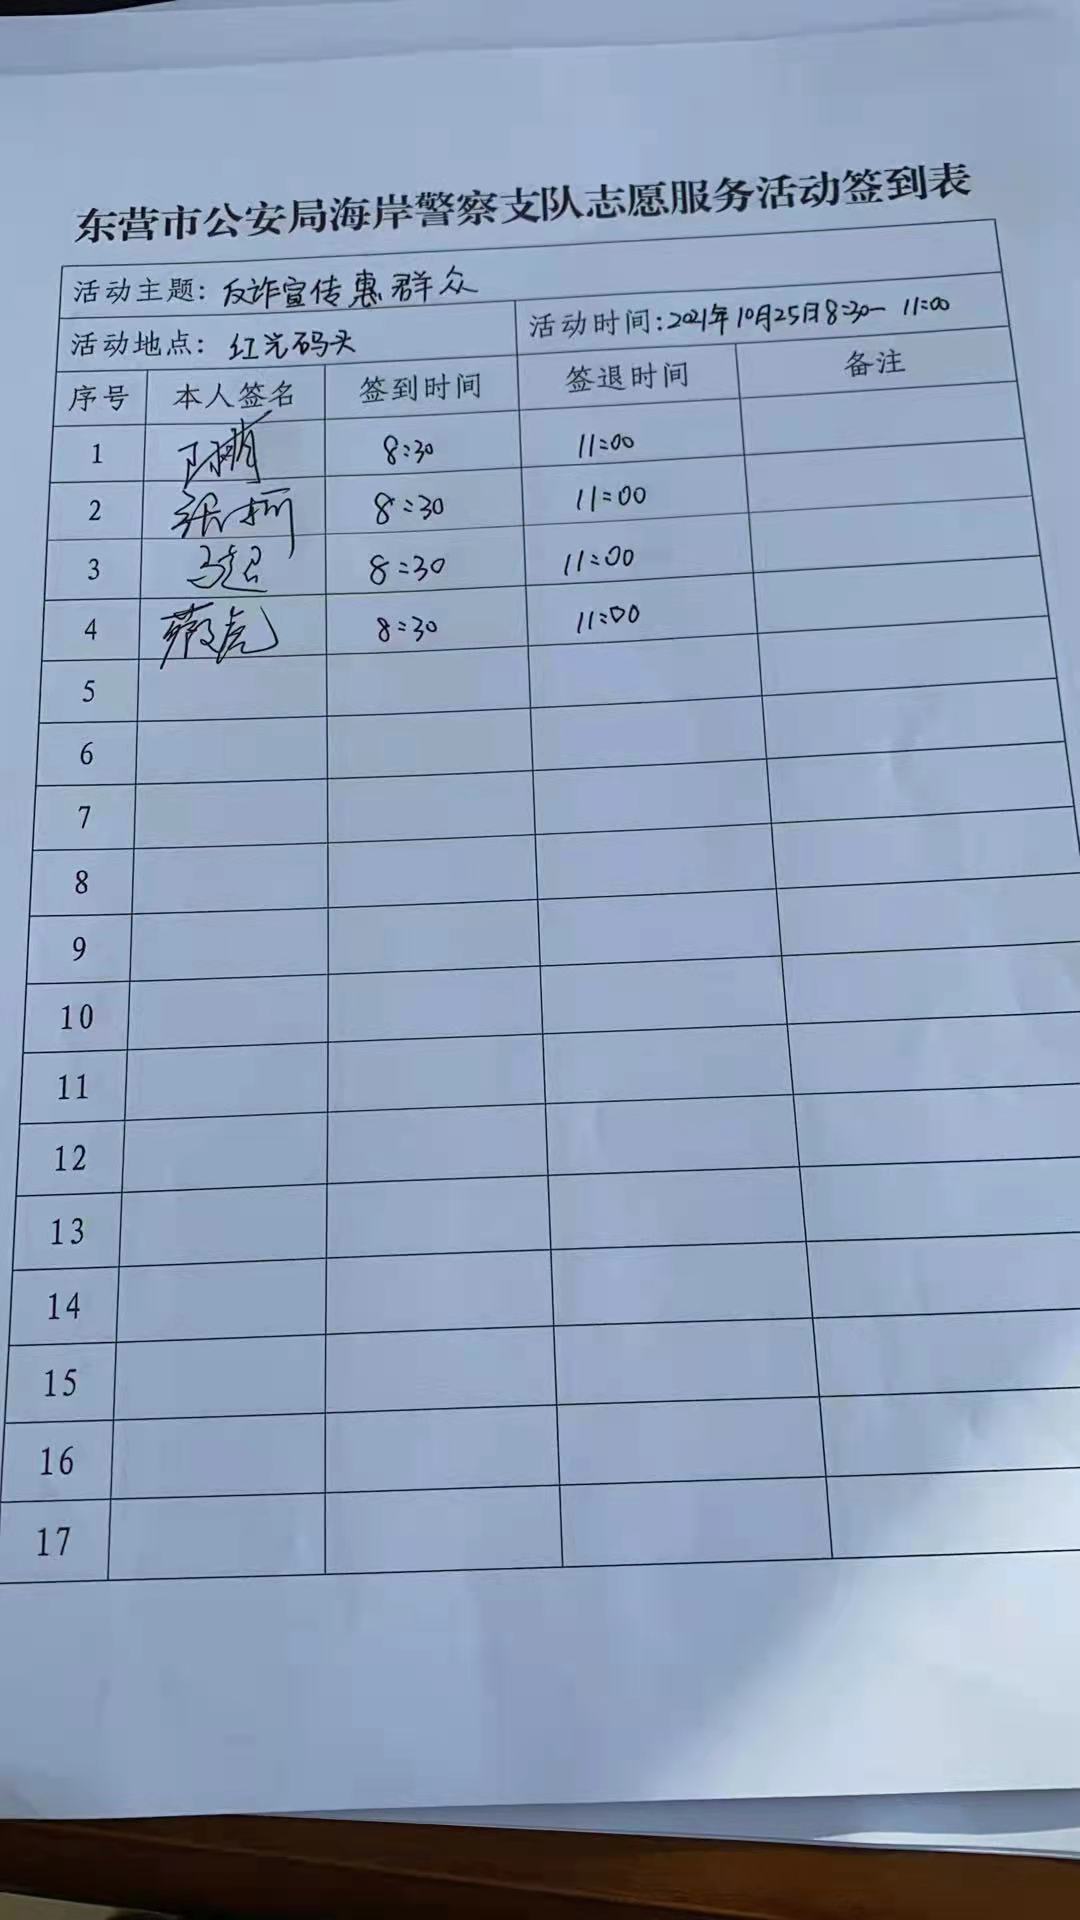 东营市公安局海岸警察支队志愿服务活动签到表
活动主题: 反诈宣传惠群众
活动地点: 红光码头 活动时间:2021年10月25日8:30-11:00
序号 本人签名 签到时间 签退时间 备注
1 8:30 11:00
2 8:30 11:00
3 8:30 11:00
4 蔡虎 8:30 11:00
5
6
7
8
9
10
11
12
13
14
15
16
17